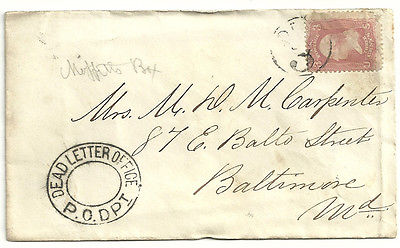 Mrs. M. D. M. Carpenter
87 E. Balto Street
Baltimore
Md.
DEAD LETTER OFFICE
P.O.DPT